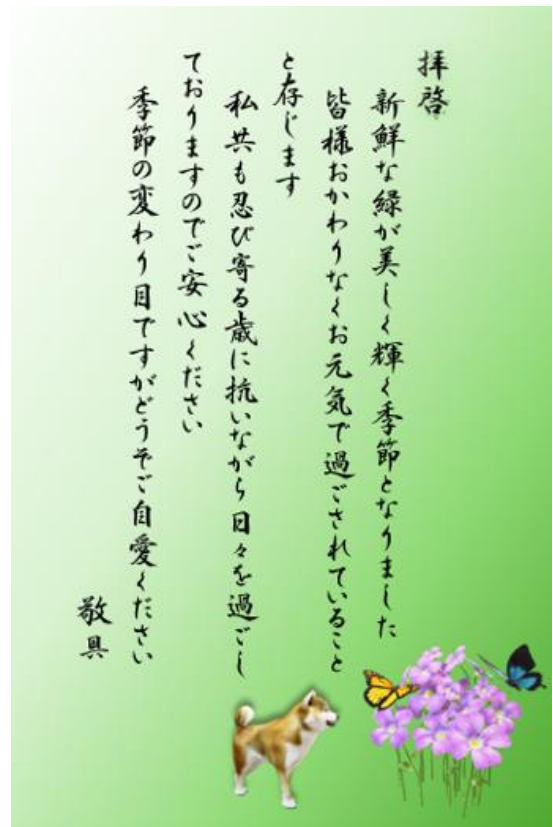 拝啓
新鮮な緑が美しく輝く季節となりました
皆様おかわりなくお元気で過ごされていること
と存じます
私共も忍び寄る歳に抗いながら日々を過ごし
ておりますのでご安心ください
季節の変わり目ですがどうぞご自愛ください
敬具